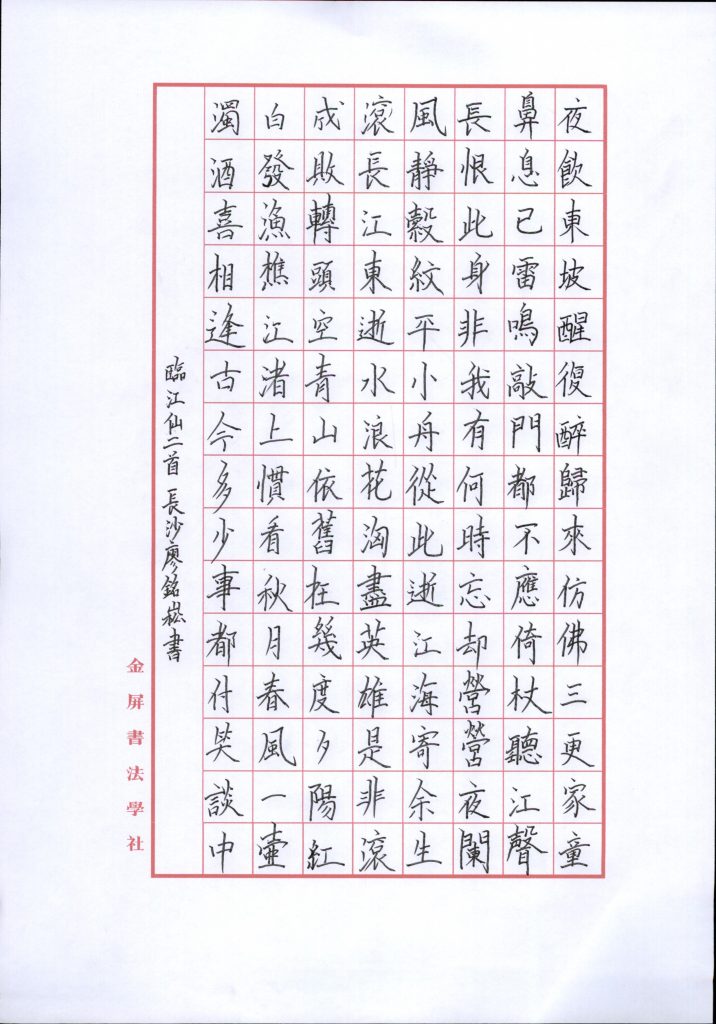 夜飲東坡醒復醉歸來仿佛三更家童
鼻息已雷鳴敲門都不應倚杖聽江聲
長恨此身非我有何時忘却營營夜闌
風靜縠紋平小舟從此逝江海寄余生
滾長江東逝水浪花淘盡英雄是非滾
成敗轉頭空青山依舊在幾度夕陽紅
白發漁樵江渚上慣看秋月春風一壺
濁酒喜相逢古今多少事都付笑談中
臨江仙二首 長沙廖銘崧書
金屏書法學社